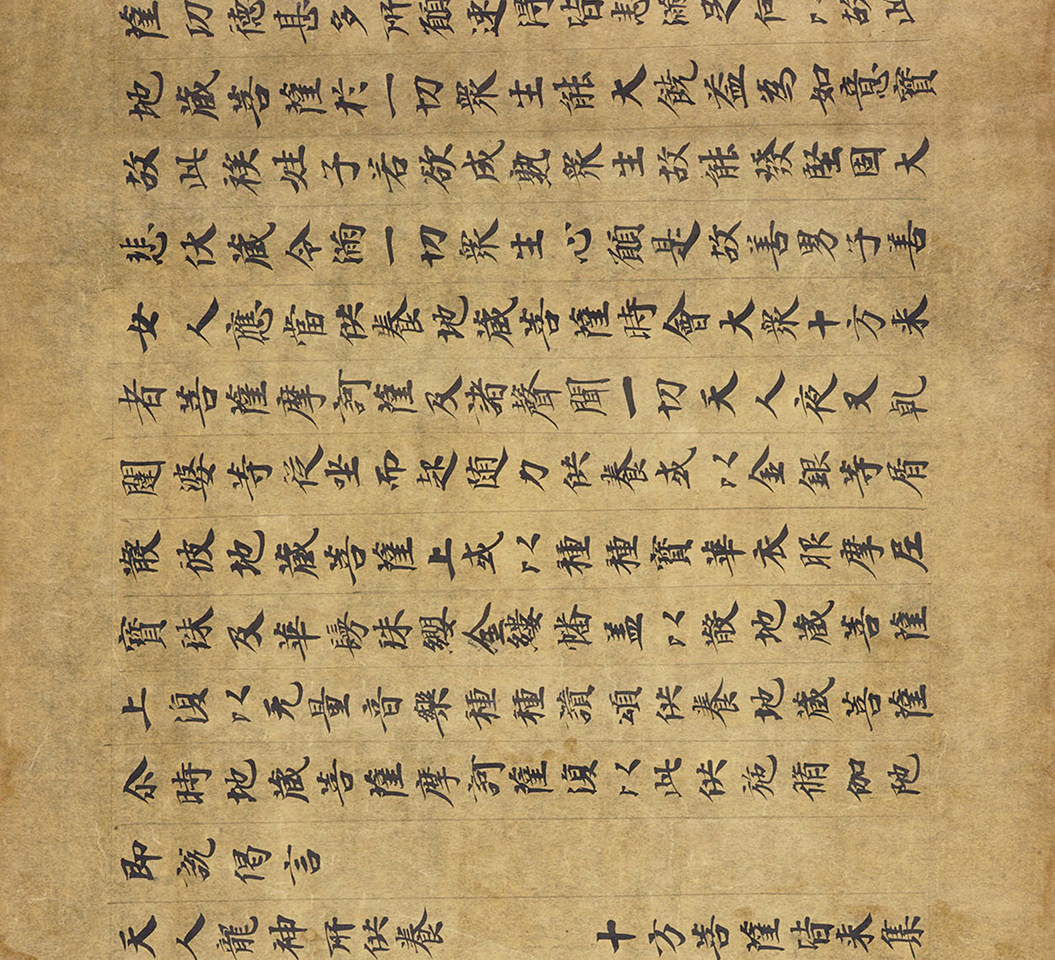 薩功德甚多所願速得皆悉滿足何以故此
地蔵菩薩於一切衆生能大饒益為如意寶
故此族姓子若欲成熟衆生故能發堅固大
悲伏蔵令滿一切衆生心願是故善男子善
女人應當供養地蔵菩薩時會大衆十方来
者菩薩摩訶薩及諸聲聞一切天人夜叉乹
闥婆等從坐而起随力供養或以金銀等屑
散彼地蔵菩薩上或以種種寶華衣服摩尼
寶珠及華鬘珠纓金縷幡盖以散地蔵菩薩
上復以无量音樂種種讃頌供養地蔵菩薩
尒時地蔵菩薩摩訶薩復以此供施脩伽陁
即說偈言
天人龍神所供養　十方菩薩皆来集